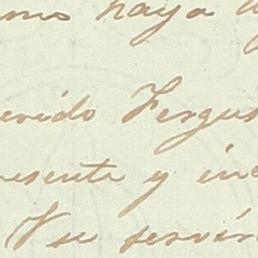 mo haya
erido Fergus
resente y in
V se servir